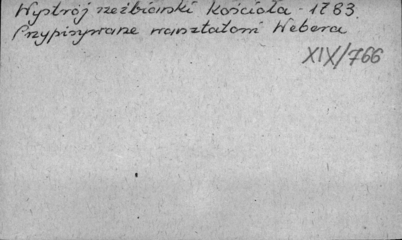 Wystrój rzeźbiarski Kościoła - 1783.
Przypisywane warsztatowi Webera
XIX/766